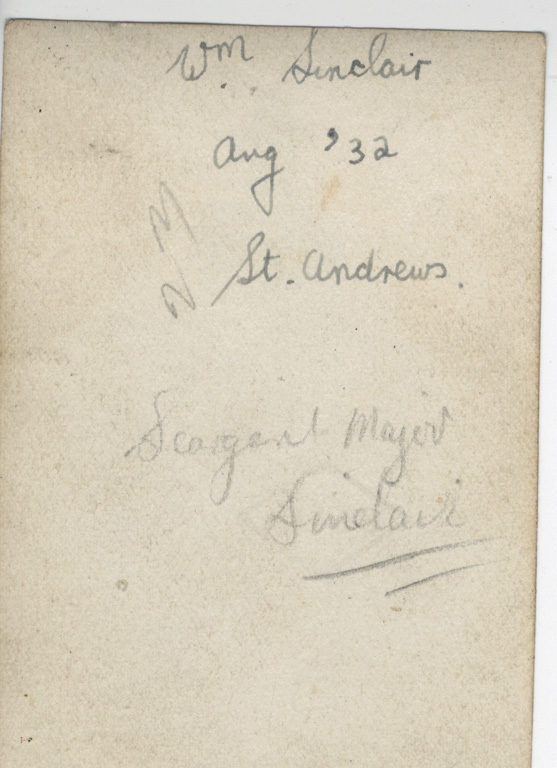 Wm. Sinclair
Aug '32
St. Andrews.
23
Seargent Major
Sinclair